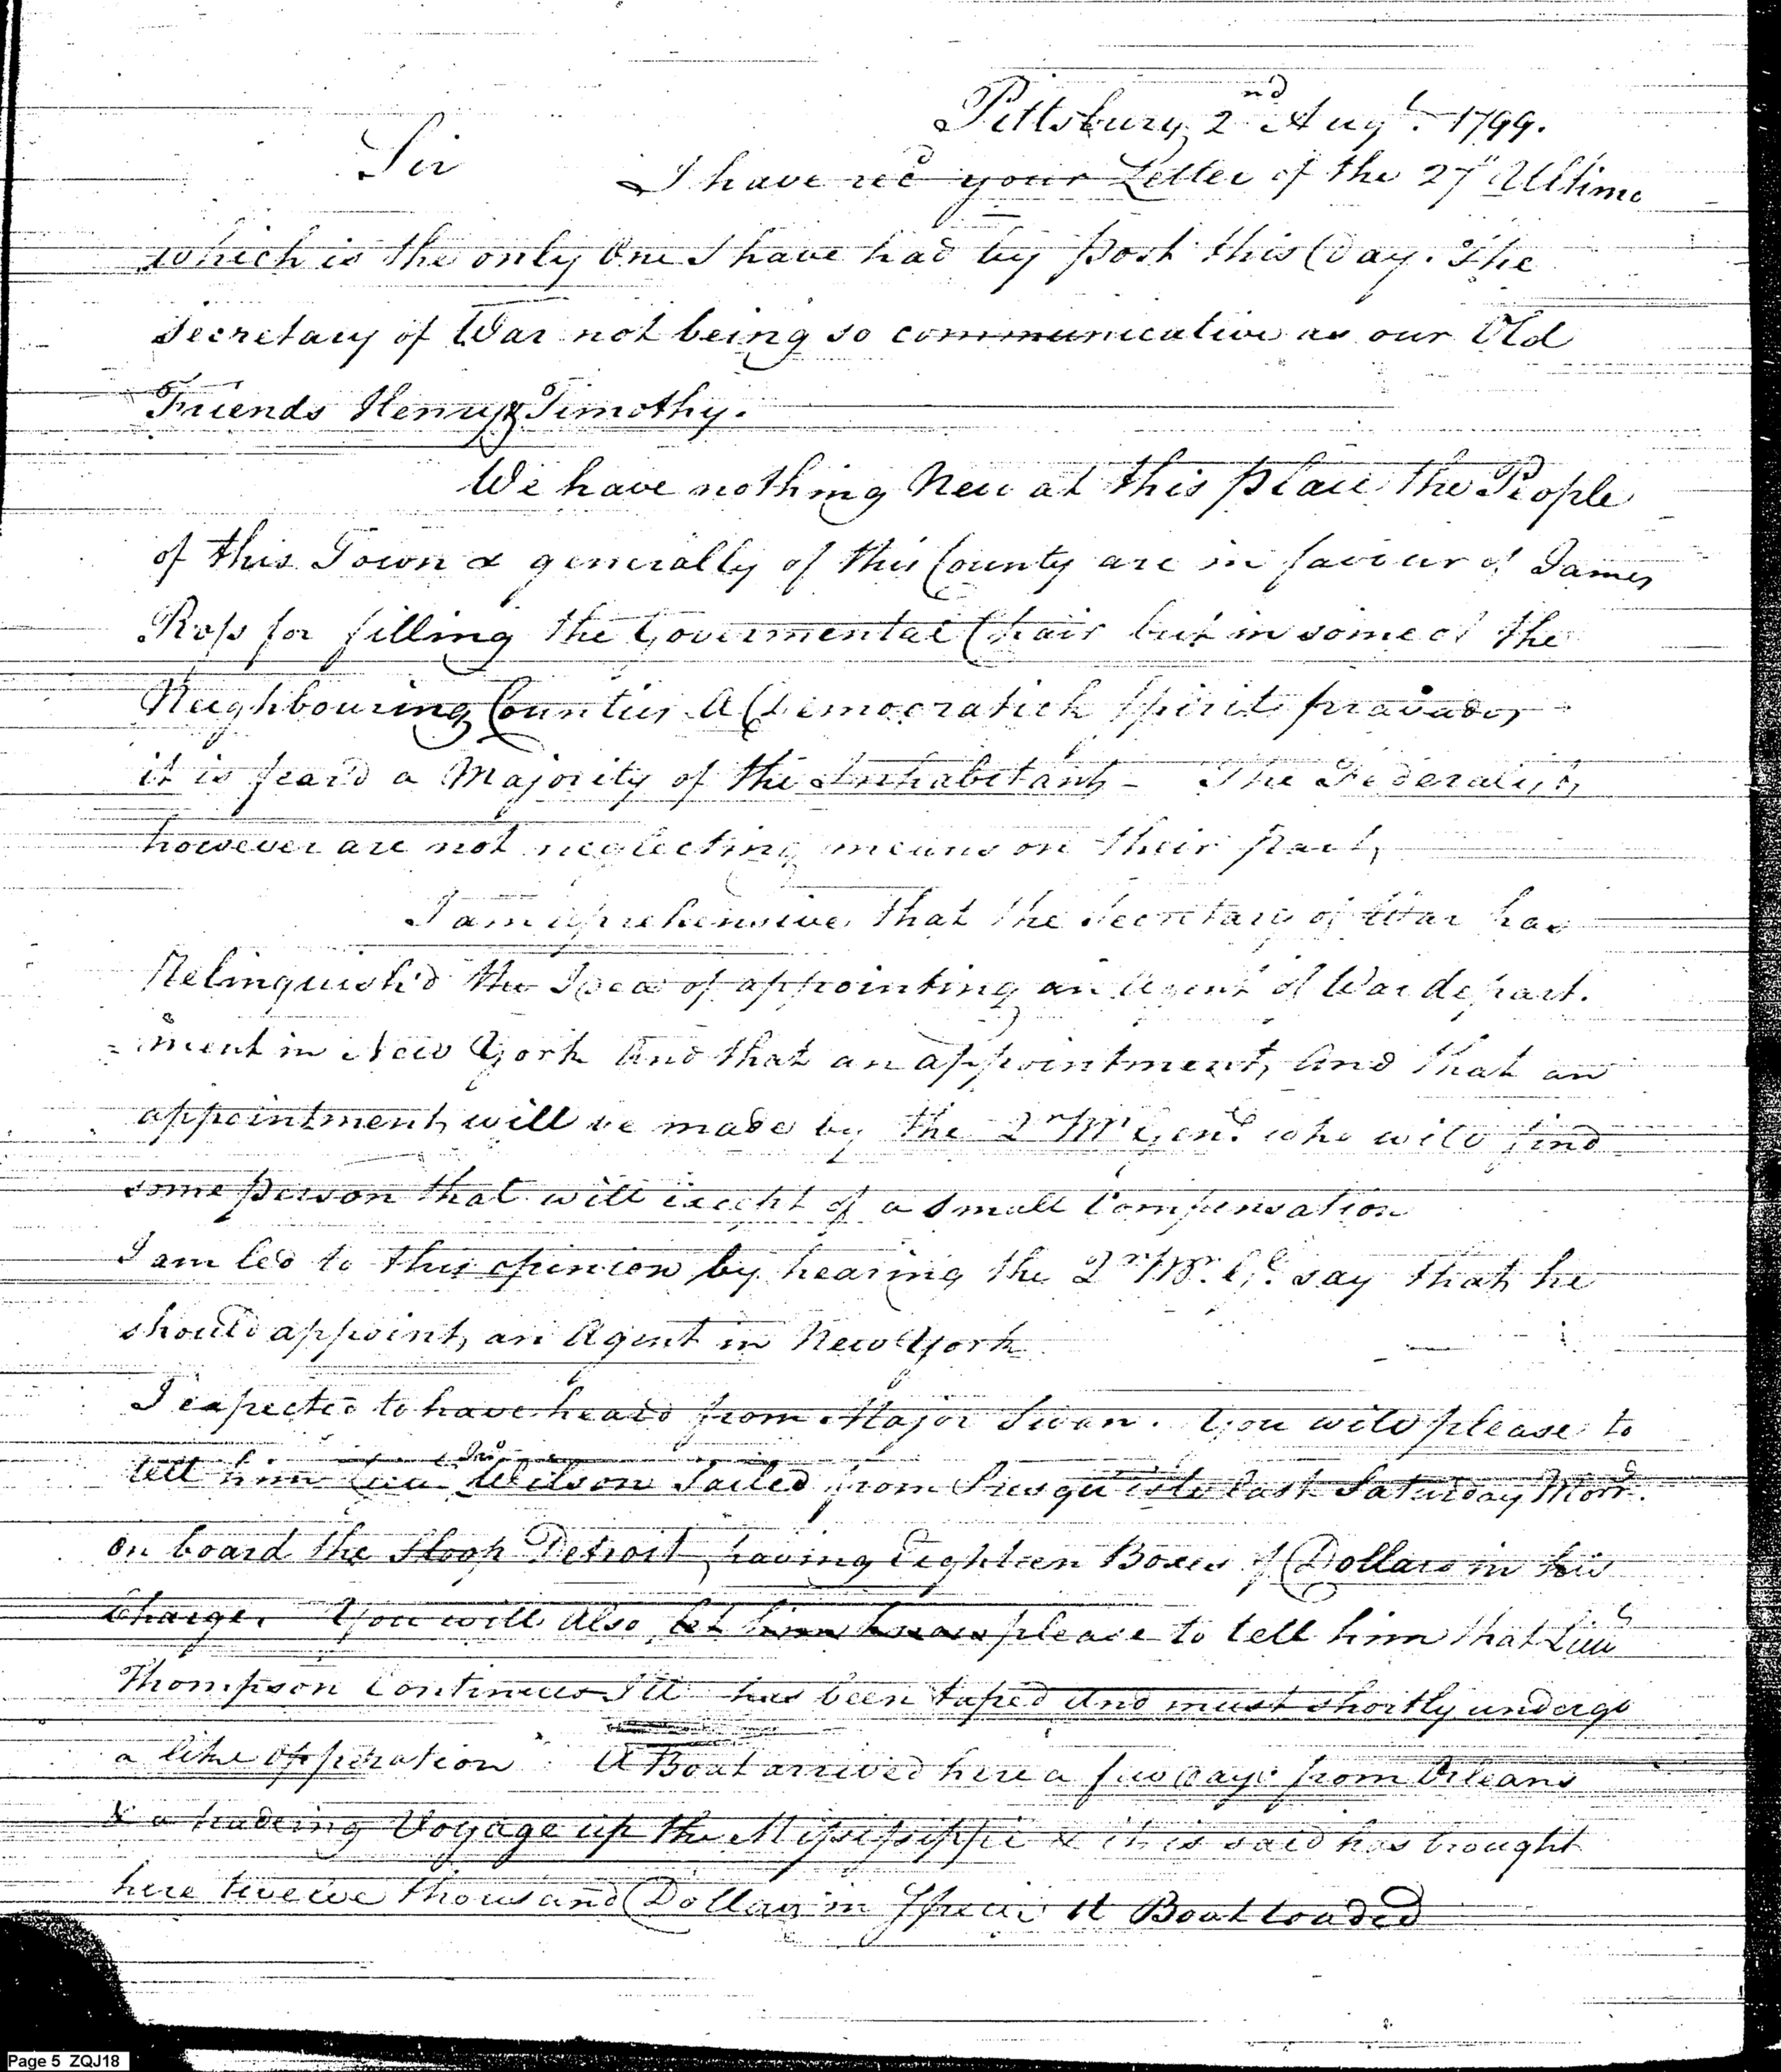 Pittsburg 2nd Augt. 1799.
Sir
I have recd your Letter of the 27th Ultimo
which is the only One I have had by post this Day. The
Secretary of War not being so communicative as our Old
Friends Henry & Timothy.
We have nothing New at this place, the People
of this Town & generally of this County are in favour of James
Ross for filling the Govermental Chair but in some of the
Neighbouring Counties A Democratick Spirit pravades
it is feard a Majority of the Inhabitants - The Federalists
however are not neglecting means on their part,
I am aprehensive, that the Secretary of War has
Relinquish'd the Idea of appointing an Agent of War depart.
=ment in New York And that an appointment, And that an
appointment, will be made by the 2r Mr Genl. who will find
some person that will except of a Small Compensation
I am led to this opinion by hearing the 2r Mr. Gl. say that he
should appoint, an Agent in New York
I expected to have heard from Major Swan. You will please to
tell him Jno Wilson Sailed from Presqu isle last Saturday Morng.
on board the Sloop Detroit having Eighteen Boxes of Dollars in his
Charge. You will Also let him know please to tell him that Lieut
Thompson Continues Ill has been taped And must shortly undergo
a like opperation A Boat arrived here a few days from Orleans
& a tradeing Voyage up the Missisippi & it is said has brought
here twelve thousand Dollars in Specie A Boat loaded
Page 5 ZQJ18